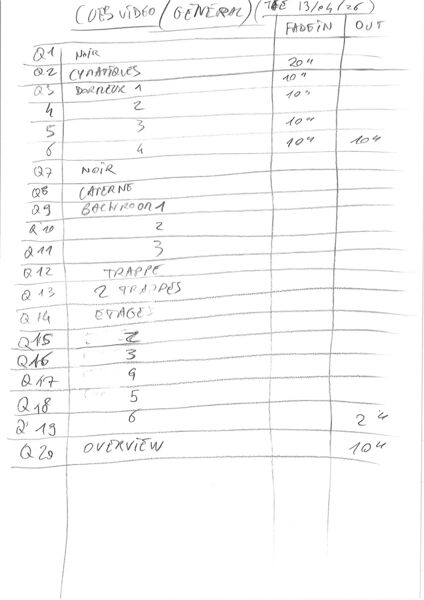 CUES VIDEO / GENERAL) ( 13/04/26)
FADE IN OUT
Q1 NOIR
Q2 CYMATIQUES 20"
Q3 DORMEUR 1 10"
4 2 10"
5 3 10"
6 4 10" 10"
Q7 NOIR
Q8 CAVERNE
Q9 BACKROOM 1
Q10 2
Q11 3
Q12 TRAPPE
Q13 2 TRAPPES
Q14 ETAGES
Q15 2
Q16 3
Q17 4
Q18 5
Q19 6 2"
Q20 OVERVIEW 10"